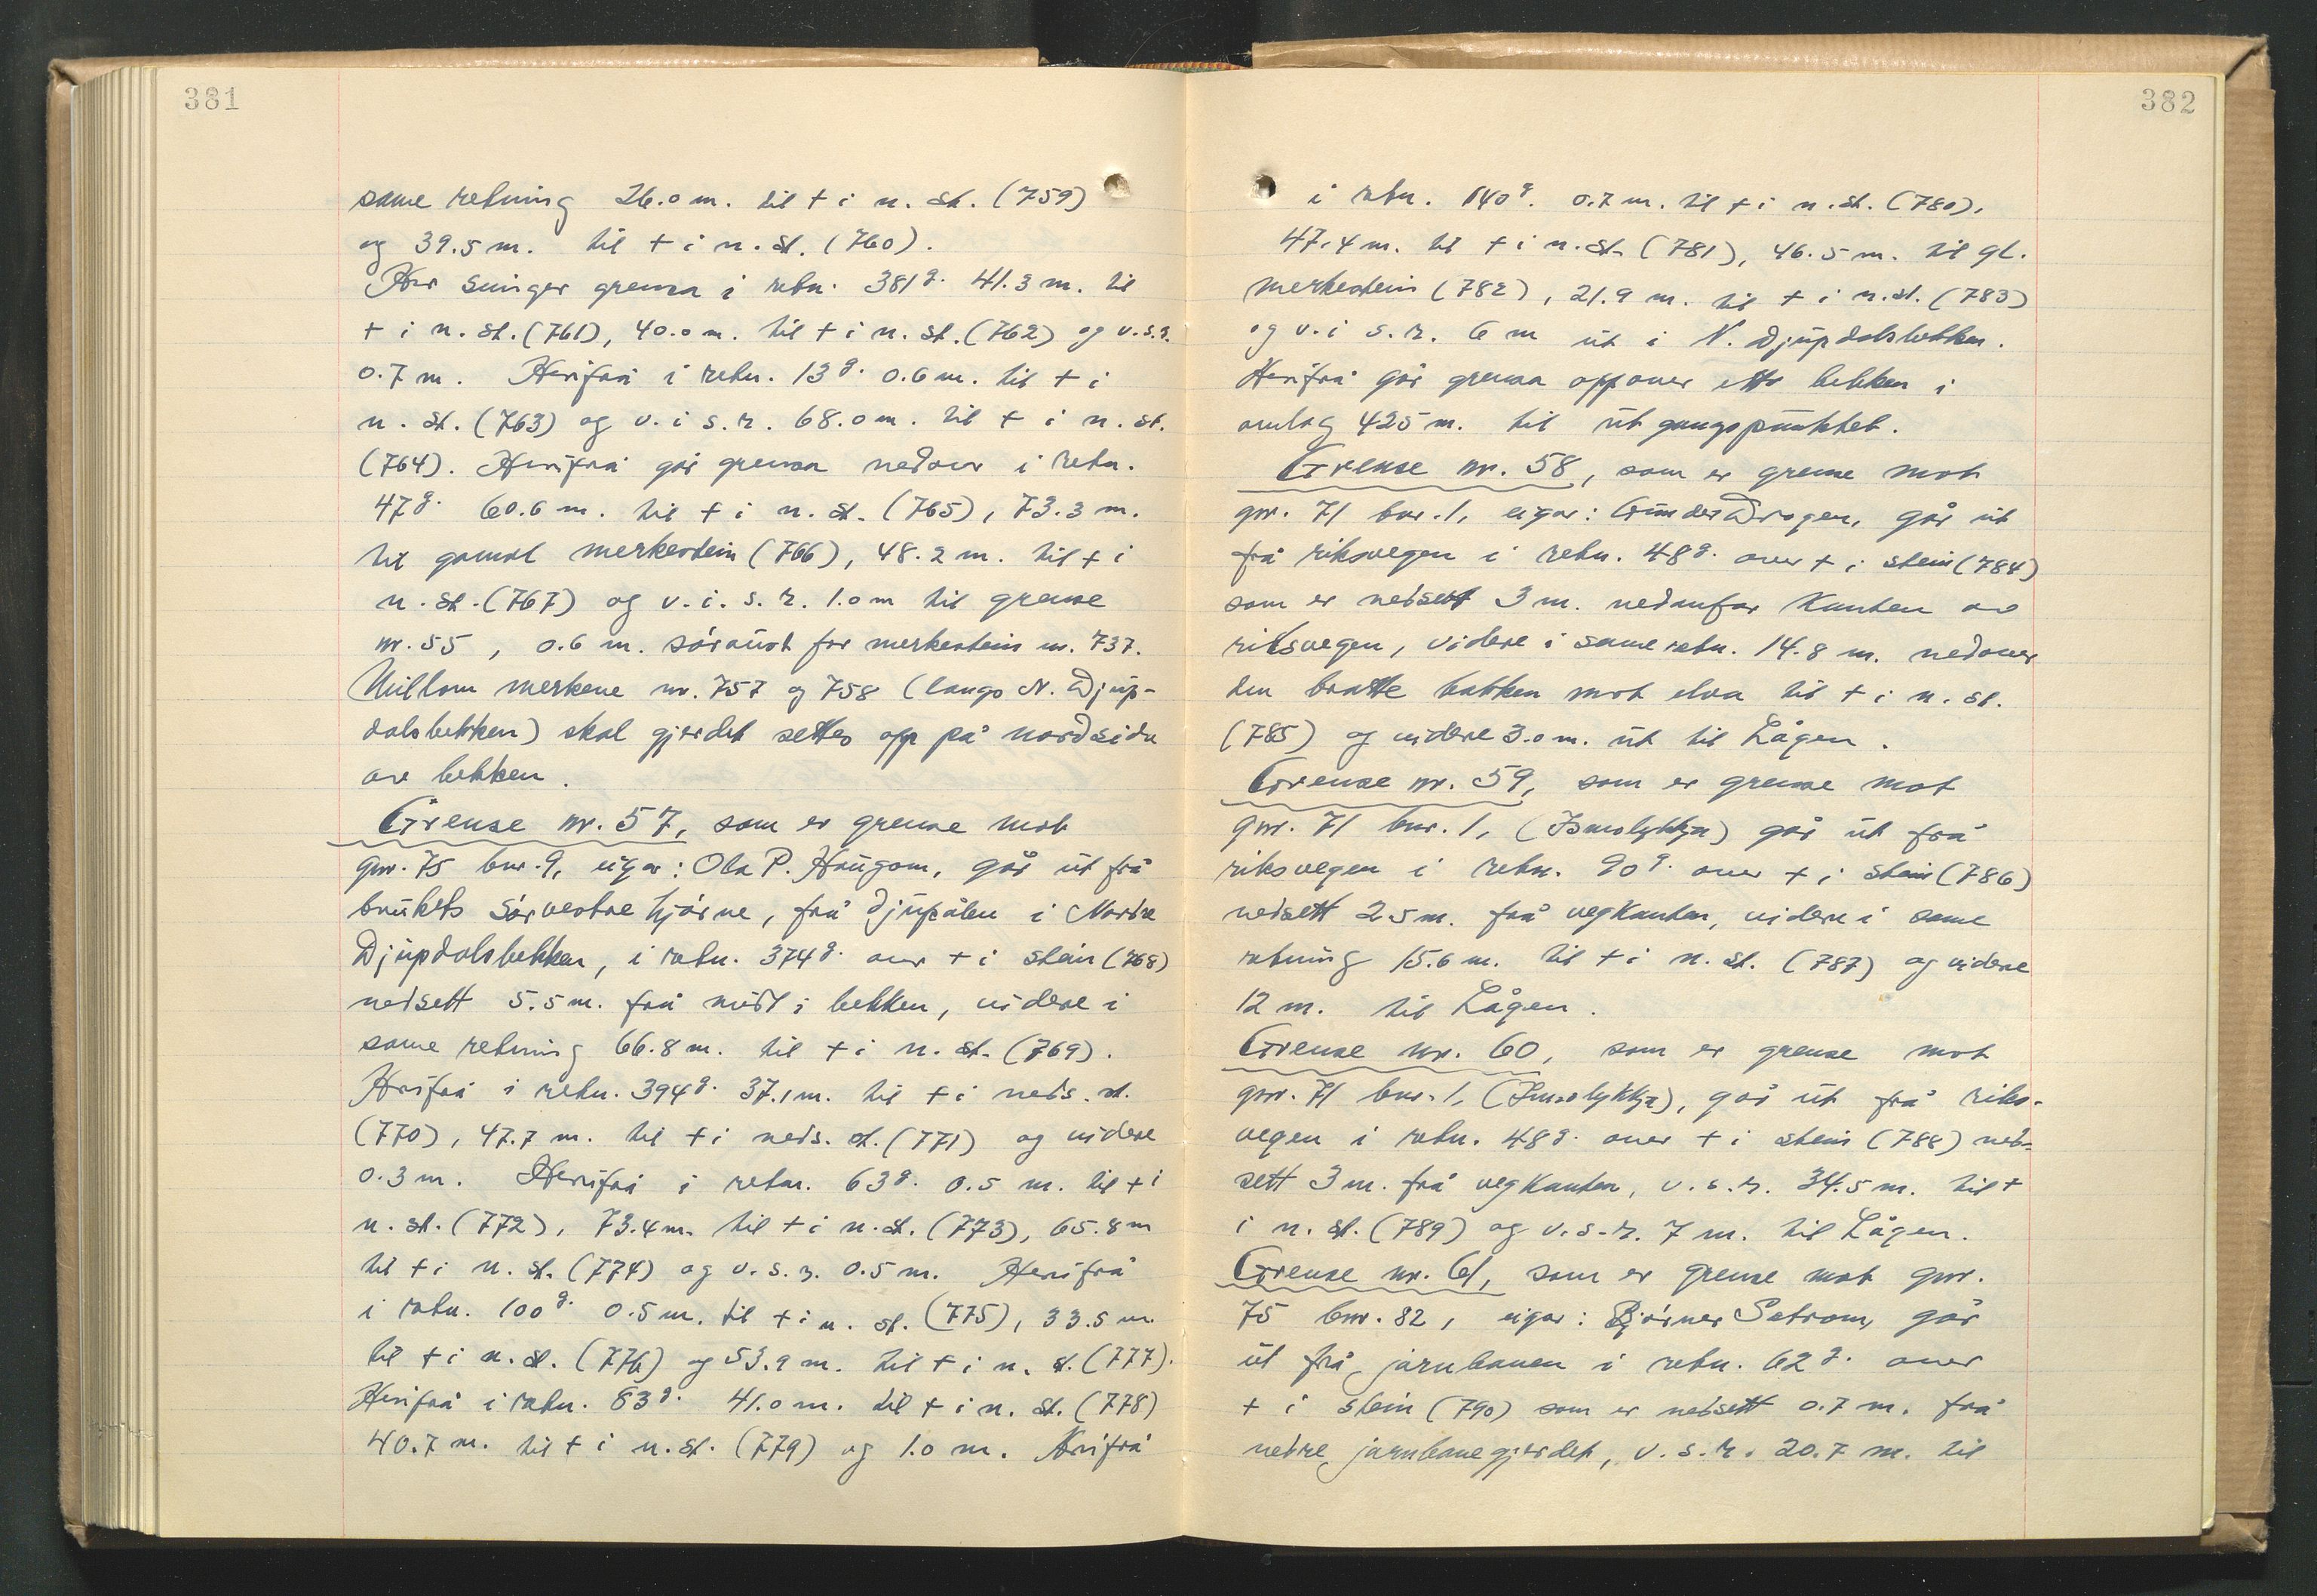 381
same retning 26.0 m. til + i n. st. (759)
og 39.5 m. til + i n. st. (760).
Her svinger grensa i retn. 381g. 41.3 m. til
+ i n. st. (761), 40.0 m. til + i n. st. (762) og v.s.r.
0.7 m. Herifrå i retn. 13g. 0.6 m. til + i
n. st. (763) og v. i s. r. 68.0 m. til + i n. st.
(764). Herifrå går grensa nedover i retn.
47g. 60.6 m. til + i n. st. (765), 73.3 m.
til gamal merkestein (766), 48.2 m. til + i
n. st. (767) og v. i. s. r. 1.0 m til grense
nr. 55, 0.6 m. søraust for merkestein nr. 737.
Millom merkene nr. 757 og 758 (langs N. Djup-
dalsbekken) skal gjerdet settes opp på nordsida
av bekken.
Grense nr. 57, som er grense mot
gnr. 75 bnr. 9, eigar: Ola P. Haugom, går ut frå
brukets sørvestre hjørne, frå djupålen i Nordre
Djupdalsbekken, i retn. 374g. over + i stein (768)
nedsett 5.5 m. frå midt i bekken, videre i
same retning 66.8 m. til + i n. st. (769).
Herifrå i retn. 394g. 37.1 m. til + i neds. st.
(770), 47.7 m. til + i neds. st. (771) og videre
0.3 m. Herifrå i retn. 63g. 0.5 m. til + i
n. st. (772), 73.4 m. til + i n. st. (773), 65.8 m
til + i n. st. (774) og v. s. r. 0.5 m. Herifrå
i retn. 100g. 0.5 m. til + i n. st. (775), 33.5 m.
til + i n. st. (776) og 53.9 m. til + i n. st. (777).
Herifrå i retn. 83g. 41.0 m. til + i n. st. (778)
40.7 m. til + i n. st. (779) og 1.0 m. Herifrå
382
i retn. 140g. 0.7 m. til + i n. st. (780),
47.4 m. til + i n. st. (781), 46.5 m. til gl.
merkestein (782), 21.9 m. til + i n. st. (783)
og v. i s. r. 6 m ut i N. Djupdalsbekken.
Herifrå går grensa oppover etter bekken i
omlag 425 m. til utgangspunktet.
Grense nr. 58, som er grense mot
gnr. 71 bnr. 1, eigar: Gunder Dragen, går ut
frå riksvegen i retn. 48g. over + i stein (784)
som er nedsett 3 m. nedanfor kanten av
riksvegen, videre i same retn. 14.8 m. nedover
den bratte bakken mot elva til + i n. st.
(785) og videre 3.0 m. ut til Lågen.
Grense nr. 59, som er grense mot
gnr. 71 bnr. 1, går ut frå
riksvegen i retn. 90g. over + i stein (786)
nedsett 2.5 m. frå vegkanten, videre i same
retning 15.6 m. til + i n. st. (787) og videre
12 m. til Lågen.
Grense nr. 60, som er grense mot
gnr. 71 bnr. 1, går ut frå riks-
vegen i retn. 48g. over + i stein (788) ned-
sett 3 m. frå vegkanten, v. s. r. 34.5 m. til +
i n. st. (789) og v. s. r. 7 m. til Lågen.
Grense nr. 61, som er grense mot gnr.
75 bnr. 82, eigar: Bjørner Setrom, går
ut frå jarnbanen i retn. 62g. over
+ i stein (790) som er nedsett 0.7 m. frå
nedre jarnbanegjerdet, v. s. r. 20.7 m. til